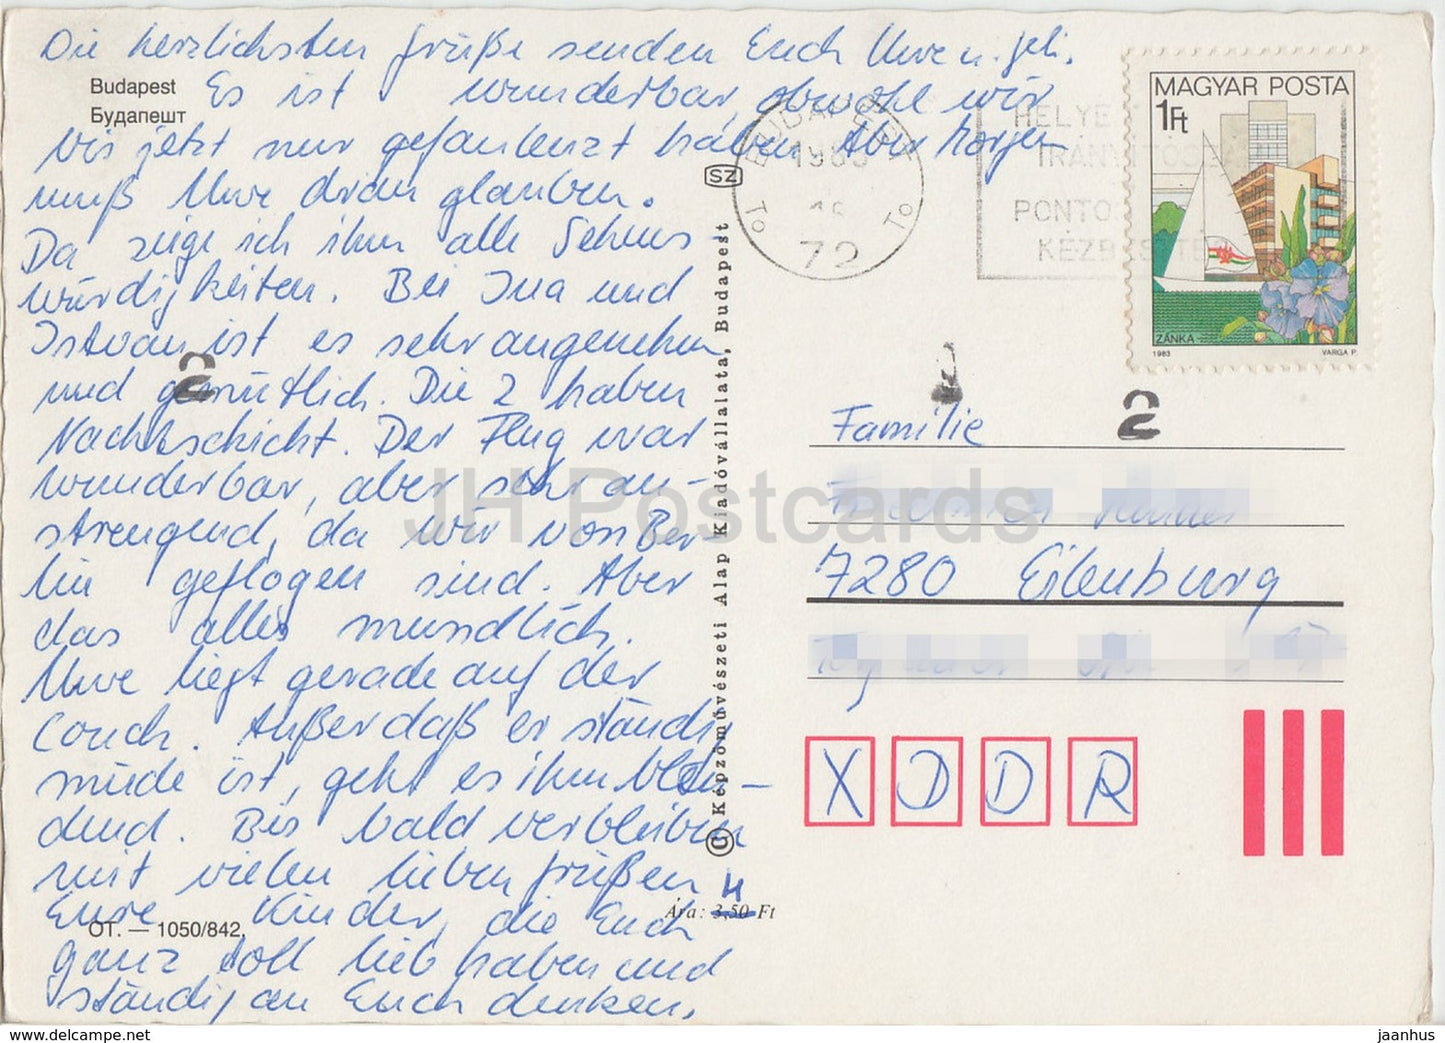 Die herzlichsten Grüße senden Euch Uwe u.
Budapest
Будапешт
Es ist wunderbar, obwohl wir
bis jetzt nur gefaulenzt haben. Aber Morgen
muß Uwe dran glauben.
Da zeige ich ihm alle Sehens-
würdigkeiten. Bei Ina und
Istvan ist es sehr angenehm
und gemütlich. Die 2 haben
Nachtschicht. Der Flug war
wunderbar, aber sehr an-
strengend, da wir von Ber-
lin geflogen sind. Aber
das alles mündlich.
Uwe liegt gerade auf der
Couch. Außer daß er ständig
müde ist, geht es ihm blen-
dend. Bis bald verbleiben
mit vielen lieben Grüßen
Eure Kinder, die Euch
OT. — 1050/842.
ganz toll lieb haben und
ständig an Euch denken.
SZ
© Képzőművészeti Alap Kiadóvállalata, Budapest
Ára: 3,50 Ft
4
BUDAPEST
1985
72
HELYES
IRÁNYÍTÓSZÁM
PONTOS
KÉZBESÍTÉS
MAGYAR POSTA
1Ft
ZÁNKA
1983
VARGA P.
2
2
Familie
7280 Eilenburg
X D D R
JH Postcards
hippostcard-delcampe.net